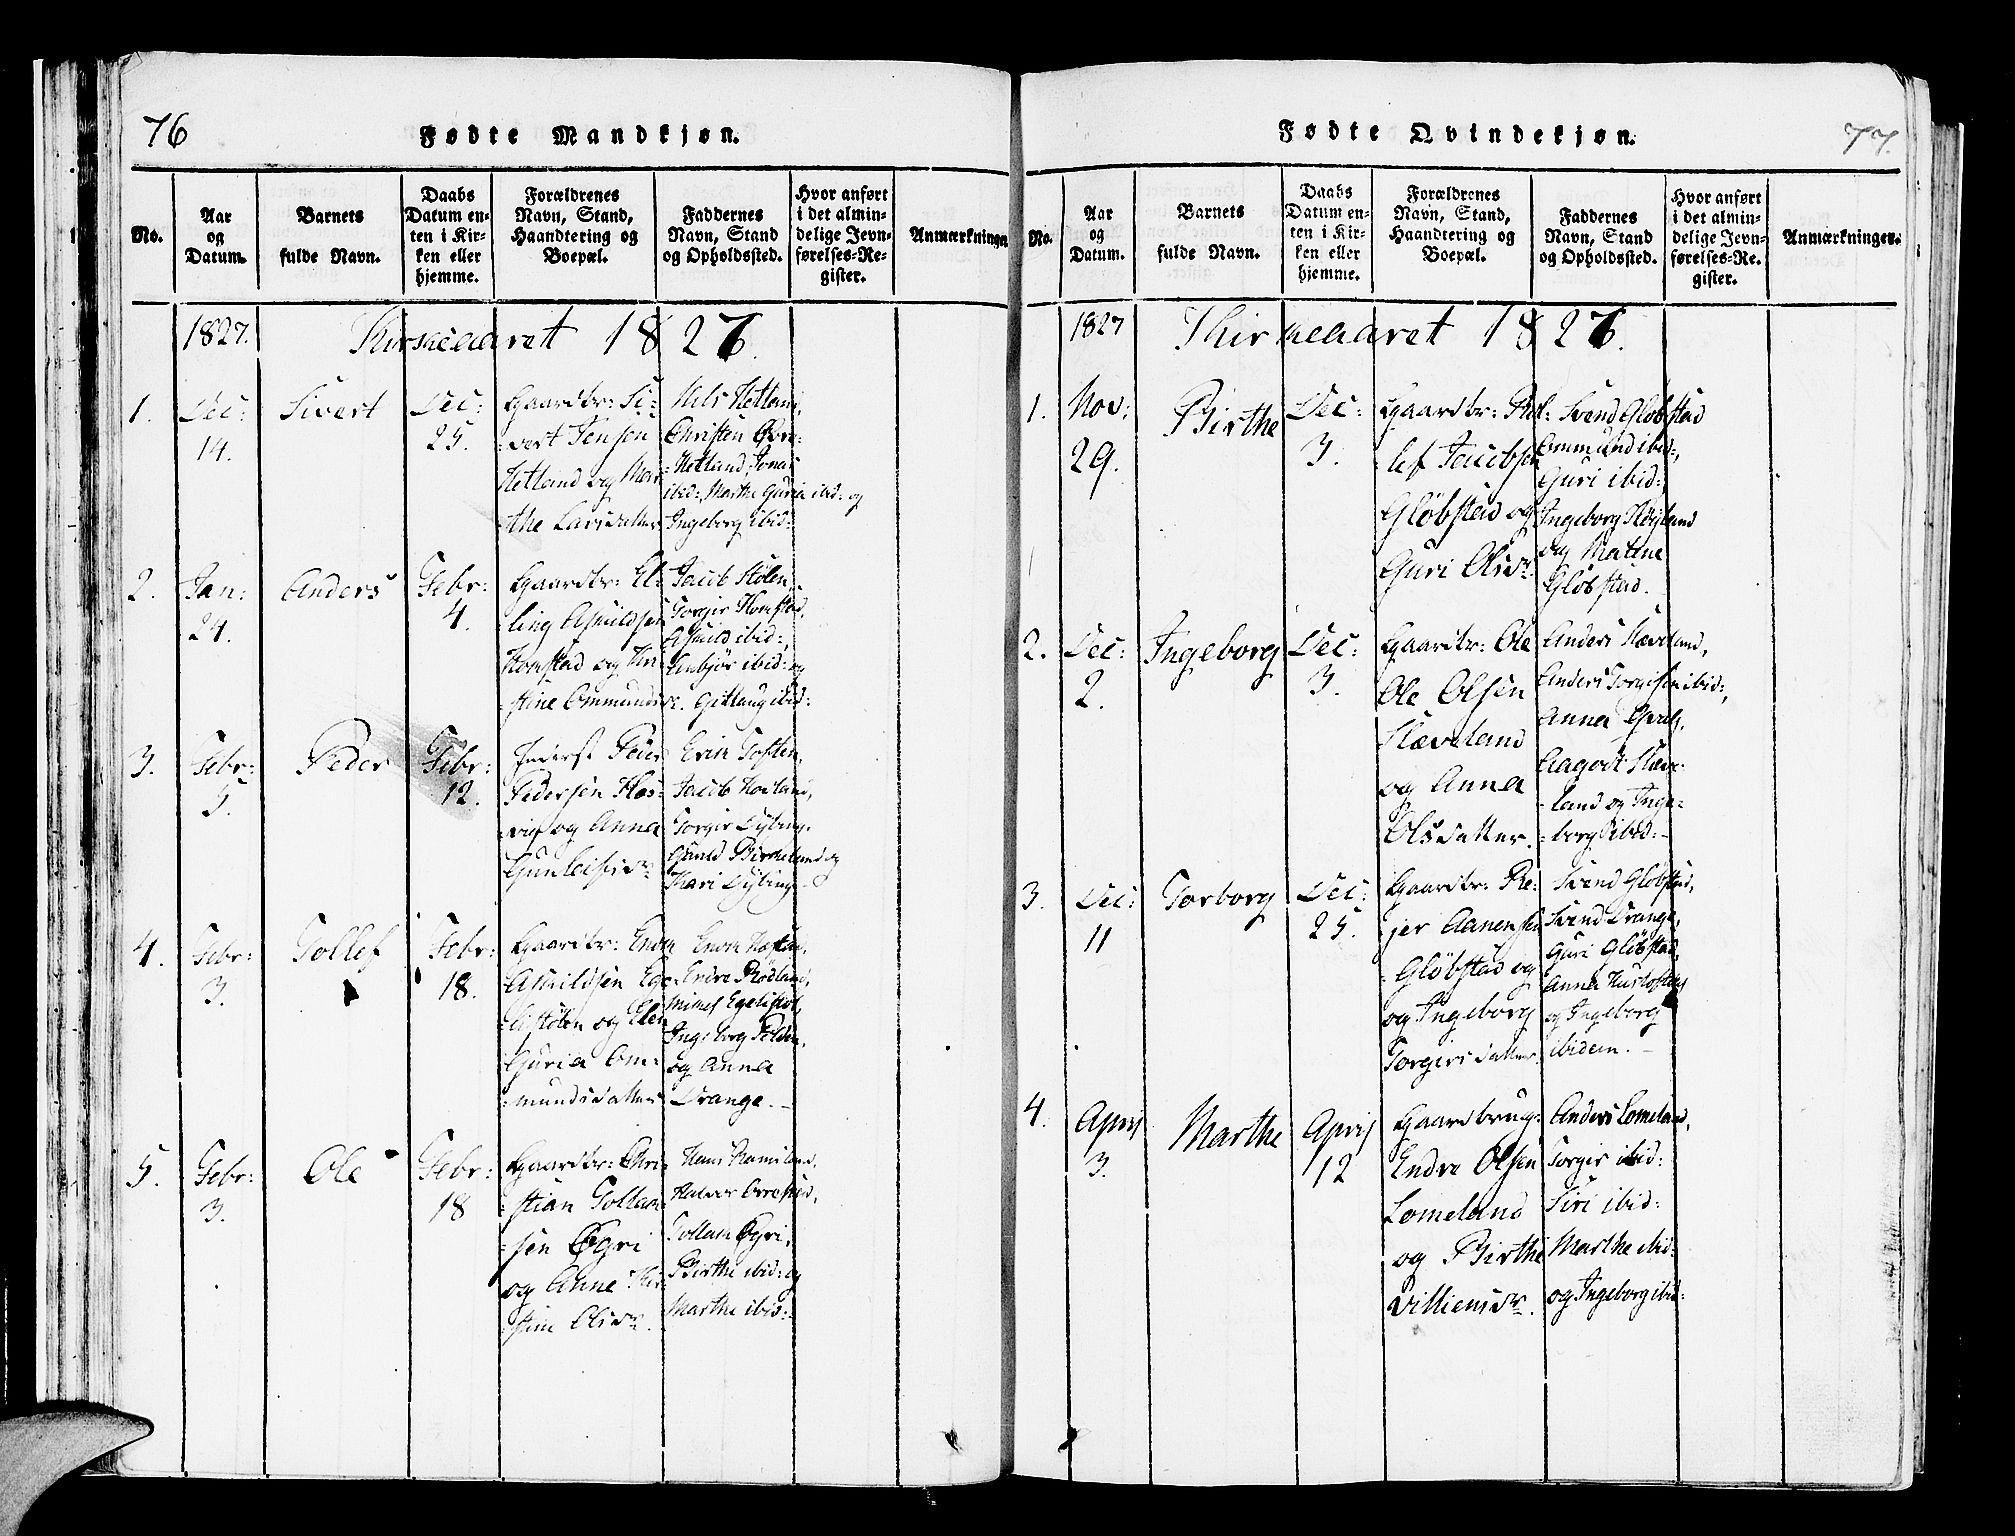 76
Fødte Mandkjøn.
No.
Aar
og
Datum.
Barnets
fulde Navn.
Daabs
Datum en-
ten i Kir-
ken eller
hjemme.
Forældrenes
Navn, Stand,
Haandtering og
Boepæl.
Faddernes
Navn, Stand
og Opholdssted.
Hvor anført
i det almin-
delige Jevn-
førelses-Re-
gister.
Anmærkninger
1827.
Kirkeaaret 1827.
1.
Dec:
14.
Sivert
Dec:
25.
Gaardbr: Si-
-vert Jensen
Hetland og Mar-
-the Larsdatter
Nels Hetland,
Christen
-Hetland, Jonas
ibid:, Marthe Guria ibid: og
Ingeborg ibid:
2.
Jan:
24.
Anders
Febr:
4.
Gaardbr: El-
-ling Asbildsen
Homstad og Kir-
-stine Ommundsdr.
Jacob Stølen
Torgir Homstad,
ibid:,
Anbjør ibid: og
Gitlaug ibid:
3.
Febr:
5.
Peder
Febr:
12.
Inderst Peder
Pedersen
og Anna
Gunleifsdr
Erik Toften,
Jacob Hovland,
Torgir Dybing,
Birkeland og
Kari Dybing
4.
Febr:
3.
Tollef
Febr:
18.
Gaardbr: Enok
Asbildsen Ege-
-listølen og Elen
Guria Om-
-mundsdatter
Enok
Endre Rødland,
Mikel
Ingeborg
og Anna
Drange.
5.
Febr:
3.
Ole
Febr:
18
Gaardbr: Chri-
-stian Tollau-
-sen Øgri
og Anne Kir-
-stine Olsdr.
Hans Ramsland,
Halvor Orrestad,
Tollau Øgri,
Birthe ibid: og
Marthe ibid:
77.
Fødte Qvindekjøn.
No.
Aar
og
Datum.
Barnets
fulde Navn.
Daabs
Datum en-
ten i Kir-
ken eller
hjemme.
Forældrenes
Navn, Stand,
Haandtering og
Boepæl.
Faddernes
Navn, Stand
og Opholdssted.
Hvor anført
i det almin-
delige Jevn-
førelses-Re-
gister.
Anmærkninger.
1827
Kirkeaaret 1827.
1.
Nov:
29.
Birthe
Dec:
3.
Gaardbr: Rol-
lef Jacobsen
Gløbstad og
Guri Olsdr.
Svend Gløbstad
Ommund ibid:,
Guri ibid:
Ingeborg Høyland
og Matine
Gløbstad.
2.
Dec:
2.
Ingeborg
Dec:
3.
Gaardbr: Ole
Ole Olsen
Hæveland
og Anna
Olsdatter.
Anders Hæveland,
Anders Torgisen ibid:,
Anna
Aagodt Hæve-
-land og Inge-
-borg ibid:
3.
Dec:
11
Torborg
Dec:
25.
Gaardbr: Re-
jer Aanensen
Gløbstad og
og Ingeborg
Torgirsdatter.
Svend Gløbstad,
Svend Drange,
Guri Gløbstad,
Anna
og Ingeborg
ibidem.
4.
April
3.
Marthe
April
12
Gaardbrug:
Endre Olsen
Lomeland
og Birthe
Villiemsdr.
Anders Lomeland,
Torgir ibid:
Siri ibid:
Marthe ibid:
og Ingeborg ibid: